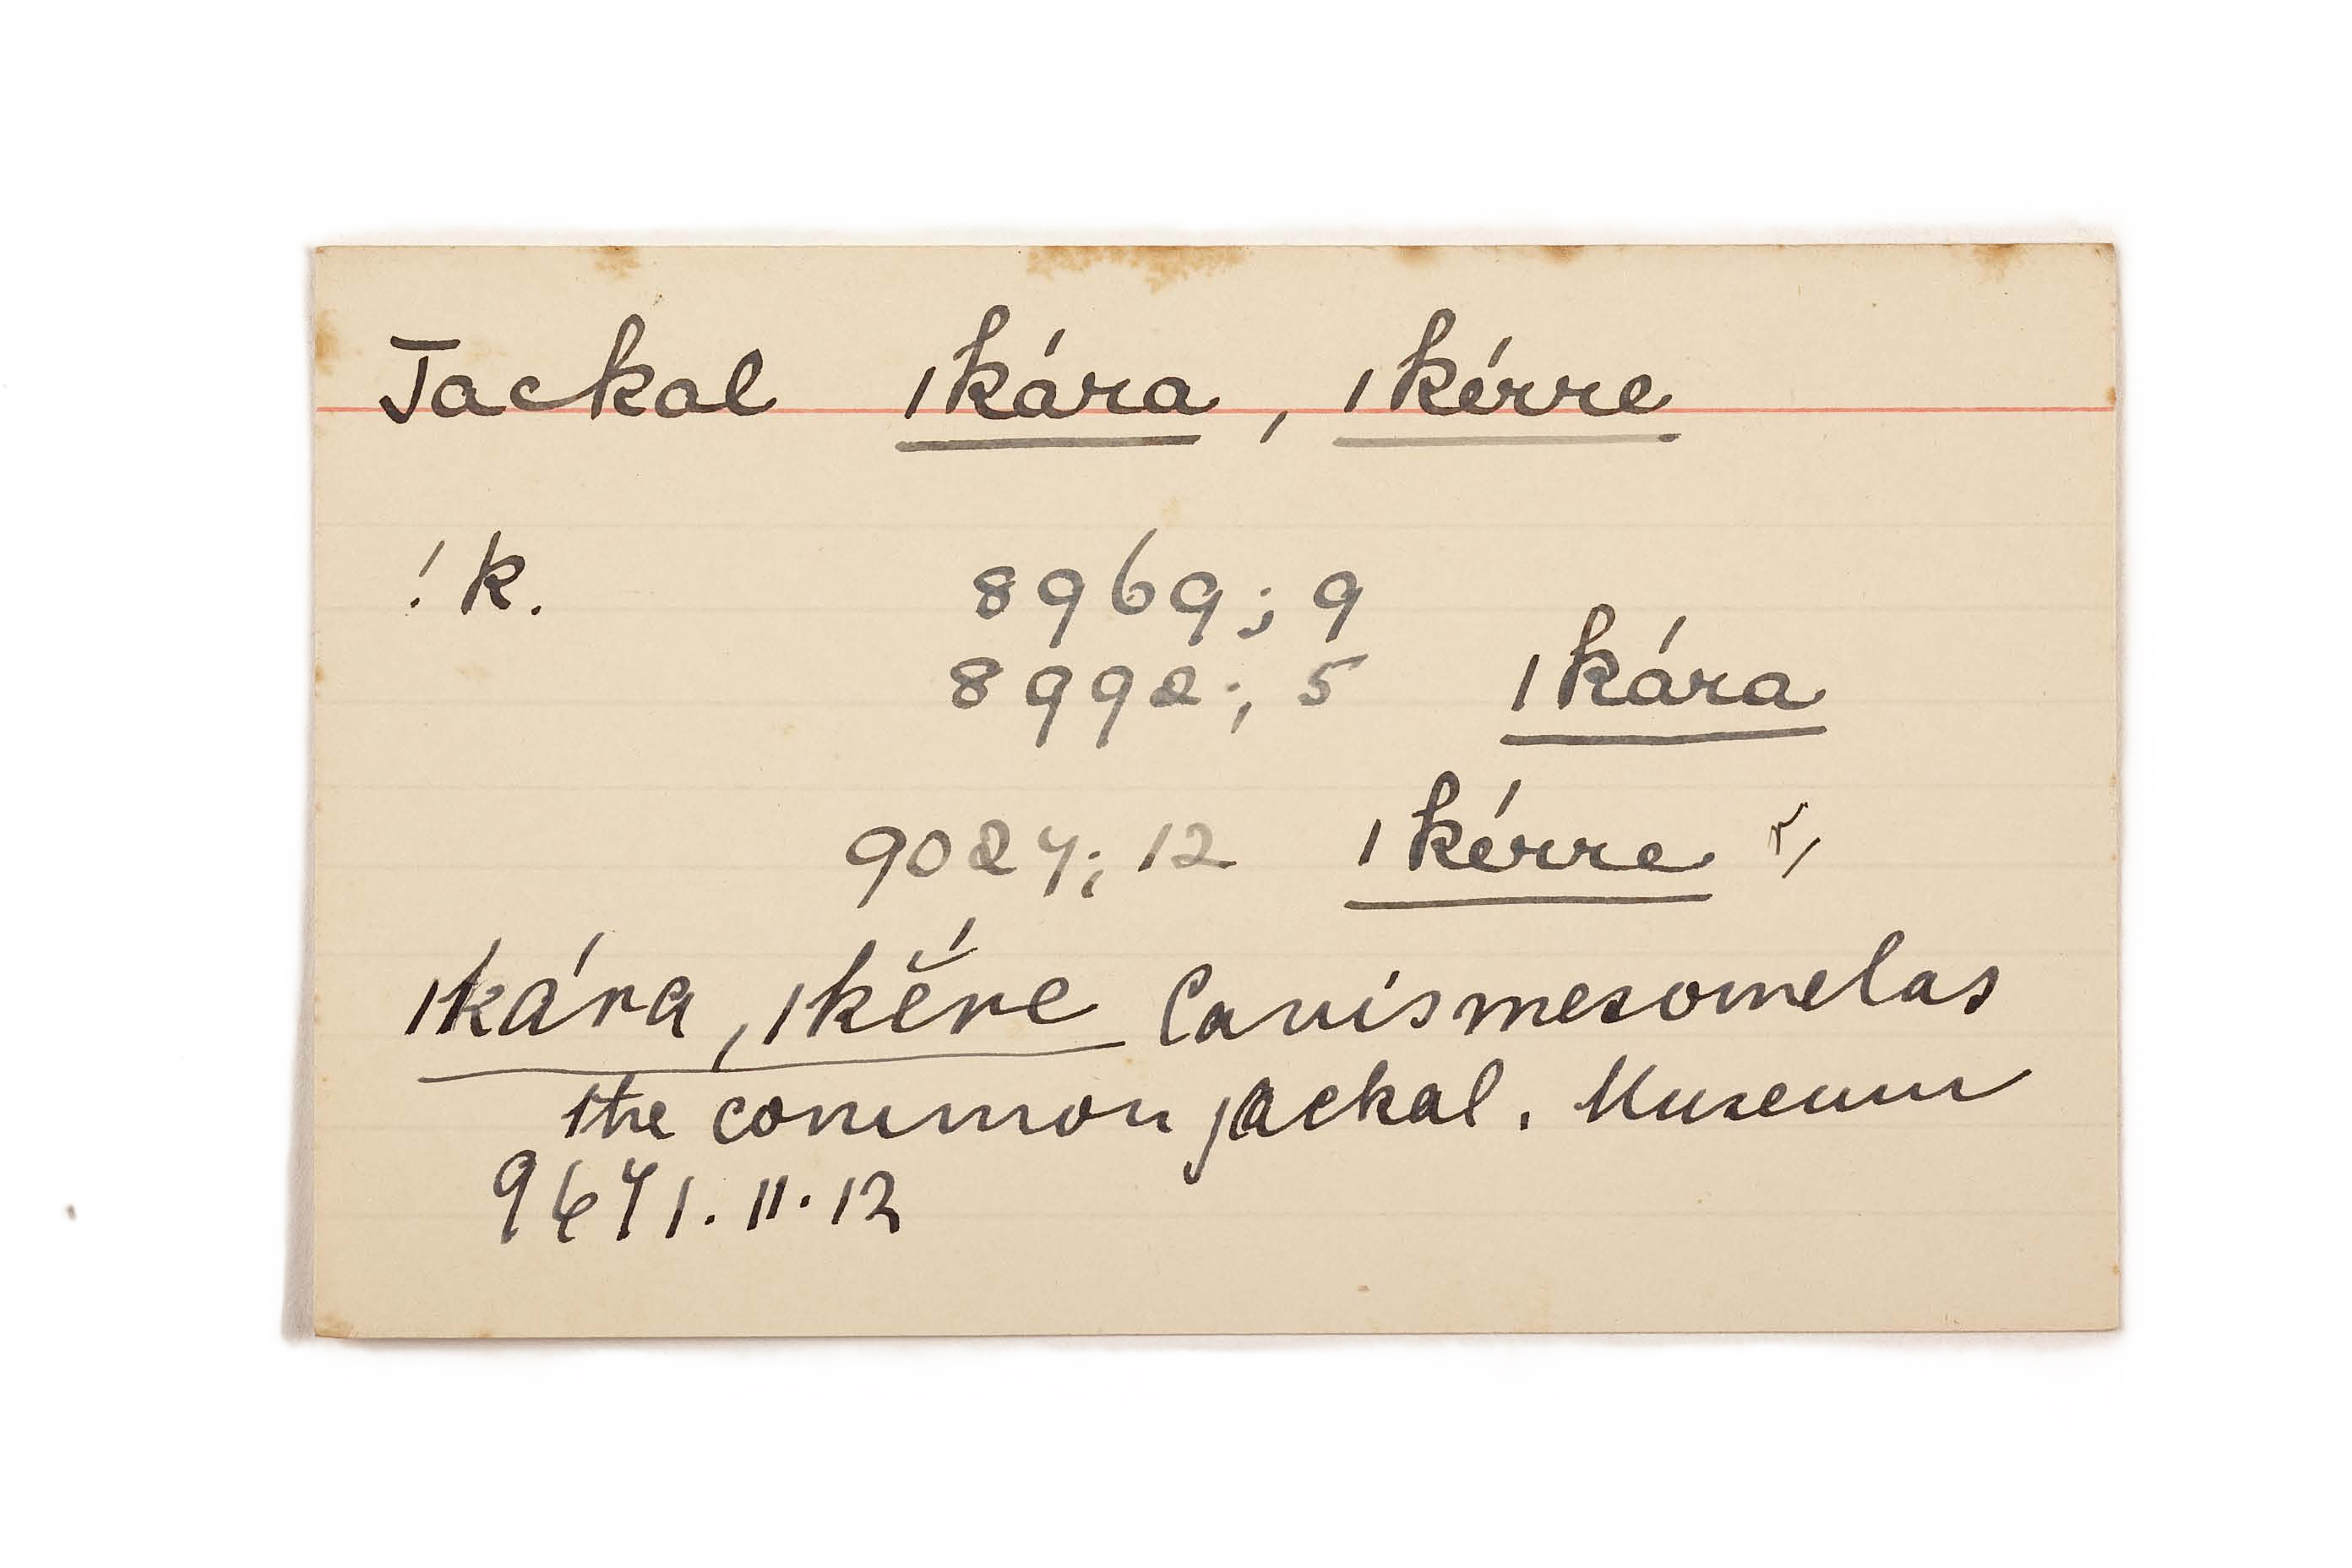 Jackal ǀkára, ǀkérre
!k. 8969; 9
8992; 5 ǀkára
9027; 12 ǀkérre
ǀkára, ǀkĕ́re Canis mesomelas
the common jackal. Museum
9671. 11. 12